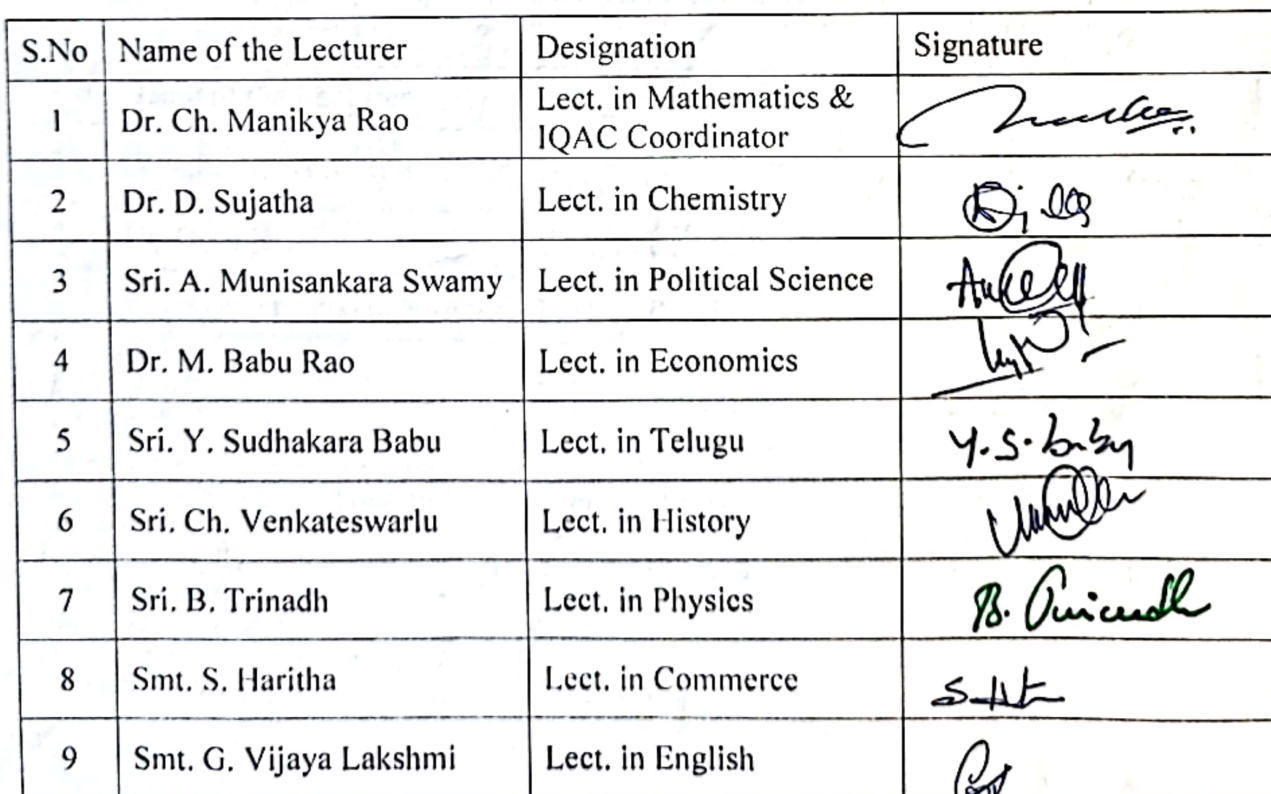 S.No Name of the Lecturer Designation Signature
1 Dr. Ch. Manikya Rao Lect. in Mathematics &
IQAC Coordinator
2 Dr. D. Sujatha Lect. in Chemistry
3 Sri. A. Munisankara Swamy Lect. in Political Science
4 Dr. M. Babu Rao Lect. in Economics
5 Sri. Y. Sudhakara Babu Lect. in Telugu Y.S.babu
6 Sri. Ch. Venkateswarlu Lect. in History
7 Sri. B. Trinadh Lect. in Physics B.
8 Smt. S. Haritha Lect. in Commerce
9 Smt. G. Vijaya Lakshmi Lect. in English